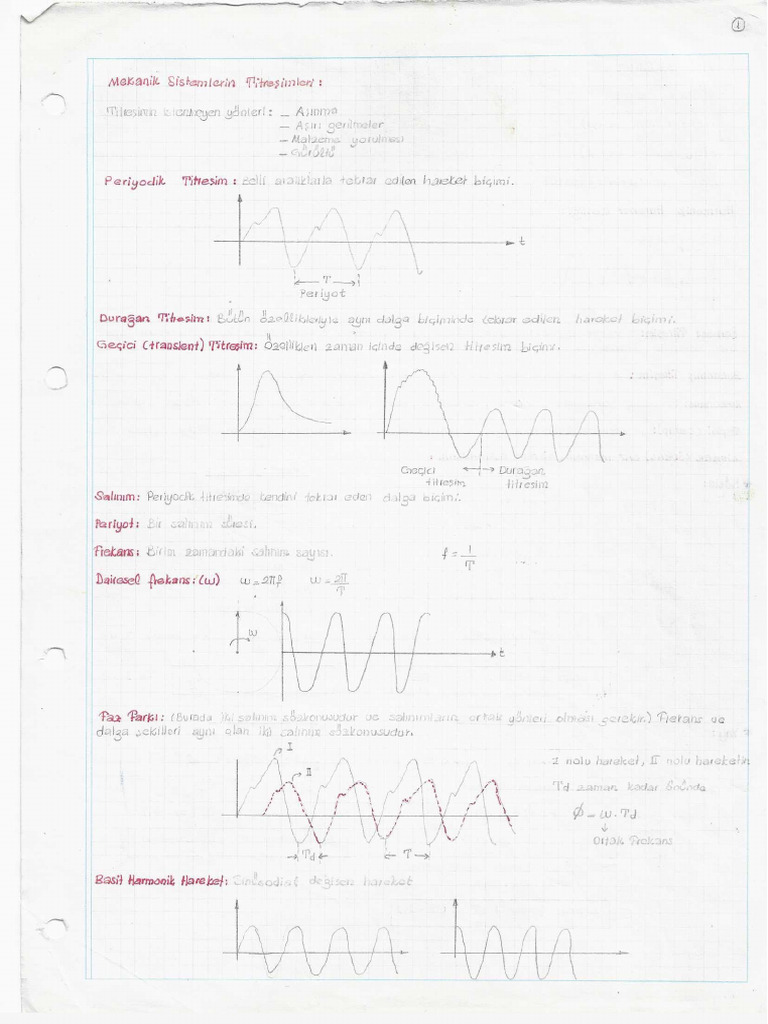 1
Mekanik Sistemlerin Titreşimleri:
Titreşimin istenmeyen yönleri: - Aşınma
- Aşırı gerilmeler
- Malzeme yorulması
- Gürültü
Periyodik Titreşim: Belli aralıklarla tekrar edilen hareket biçimi.
t
T
Periyot
Durağan Titreşim: Bütün özellikleriyle aynı dalga biçiminde tekrar edilen hareket biçimi.
Geçici (transient) Titreşim: Özellikleri zaman içinde değişen titreşim biçimi.
Geçici titreşim
Durağan titreşim
Salınım: Periyodik titreşimde kendini tekrar eden dalga biçimi.
Periyot: Bir salınım süresi.
Frekans: Birim zamandaki salınım sayısı. f = 1/T
Dairesel frekans: (w) w = 2πf w = 2π/T
w
t
Faz Farkı: (Burada iki salınım sözkonusudur ve salınımların ortak yönleri olması gerekir) Frekans ve
dalga şekilleri aynı olan iki salınım sözkonusudur.
I
II
I nolu hareket, II nolu hareketin
Td zaman kadar önünde
φ = w.Td
Ortak Frekans
Td
T
Basit Harmonik Hareket: Sinüsodial değişen hareket